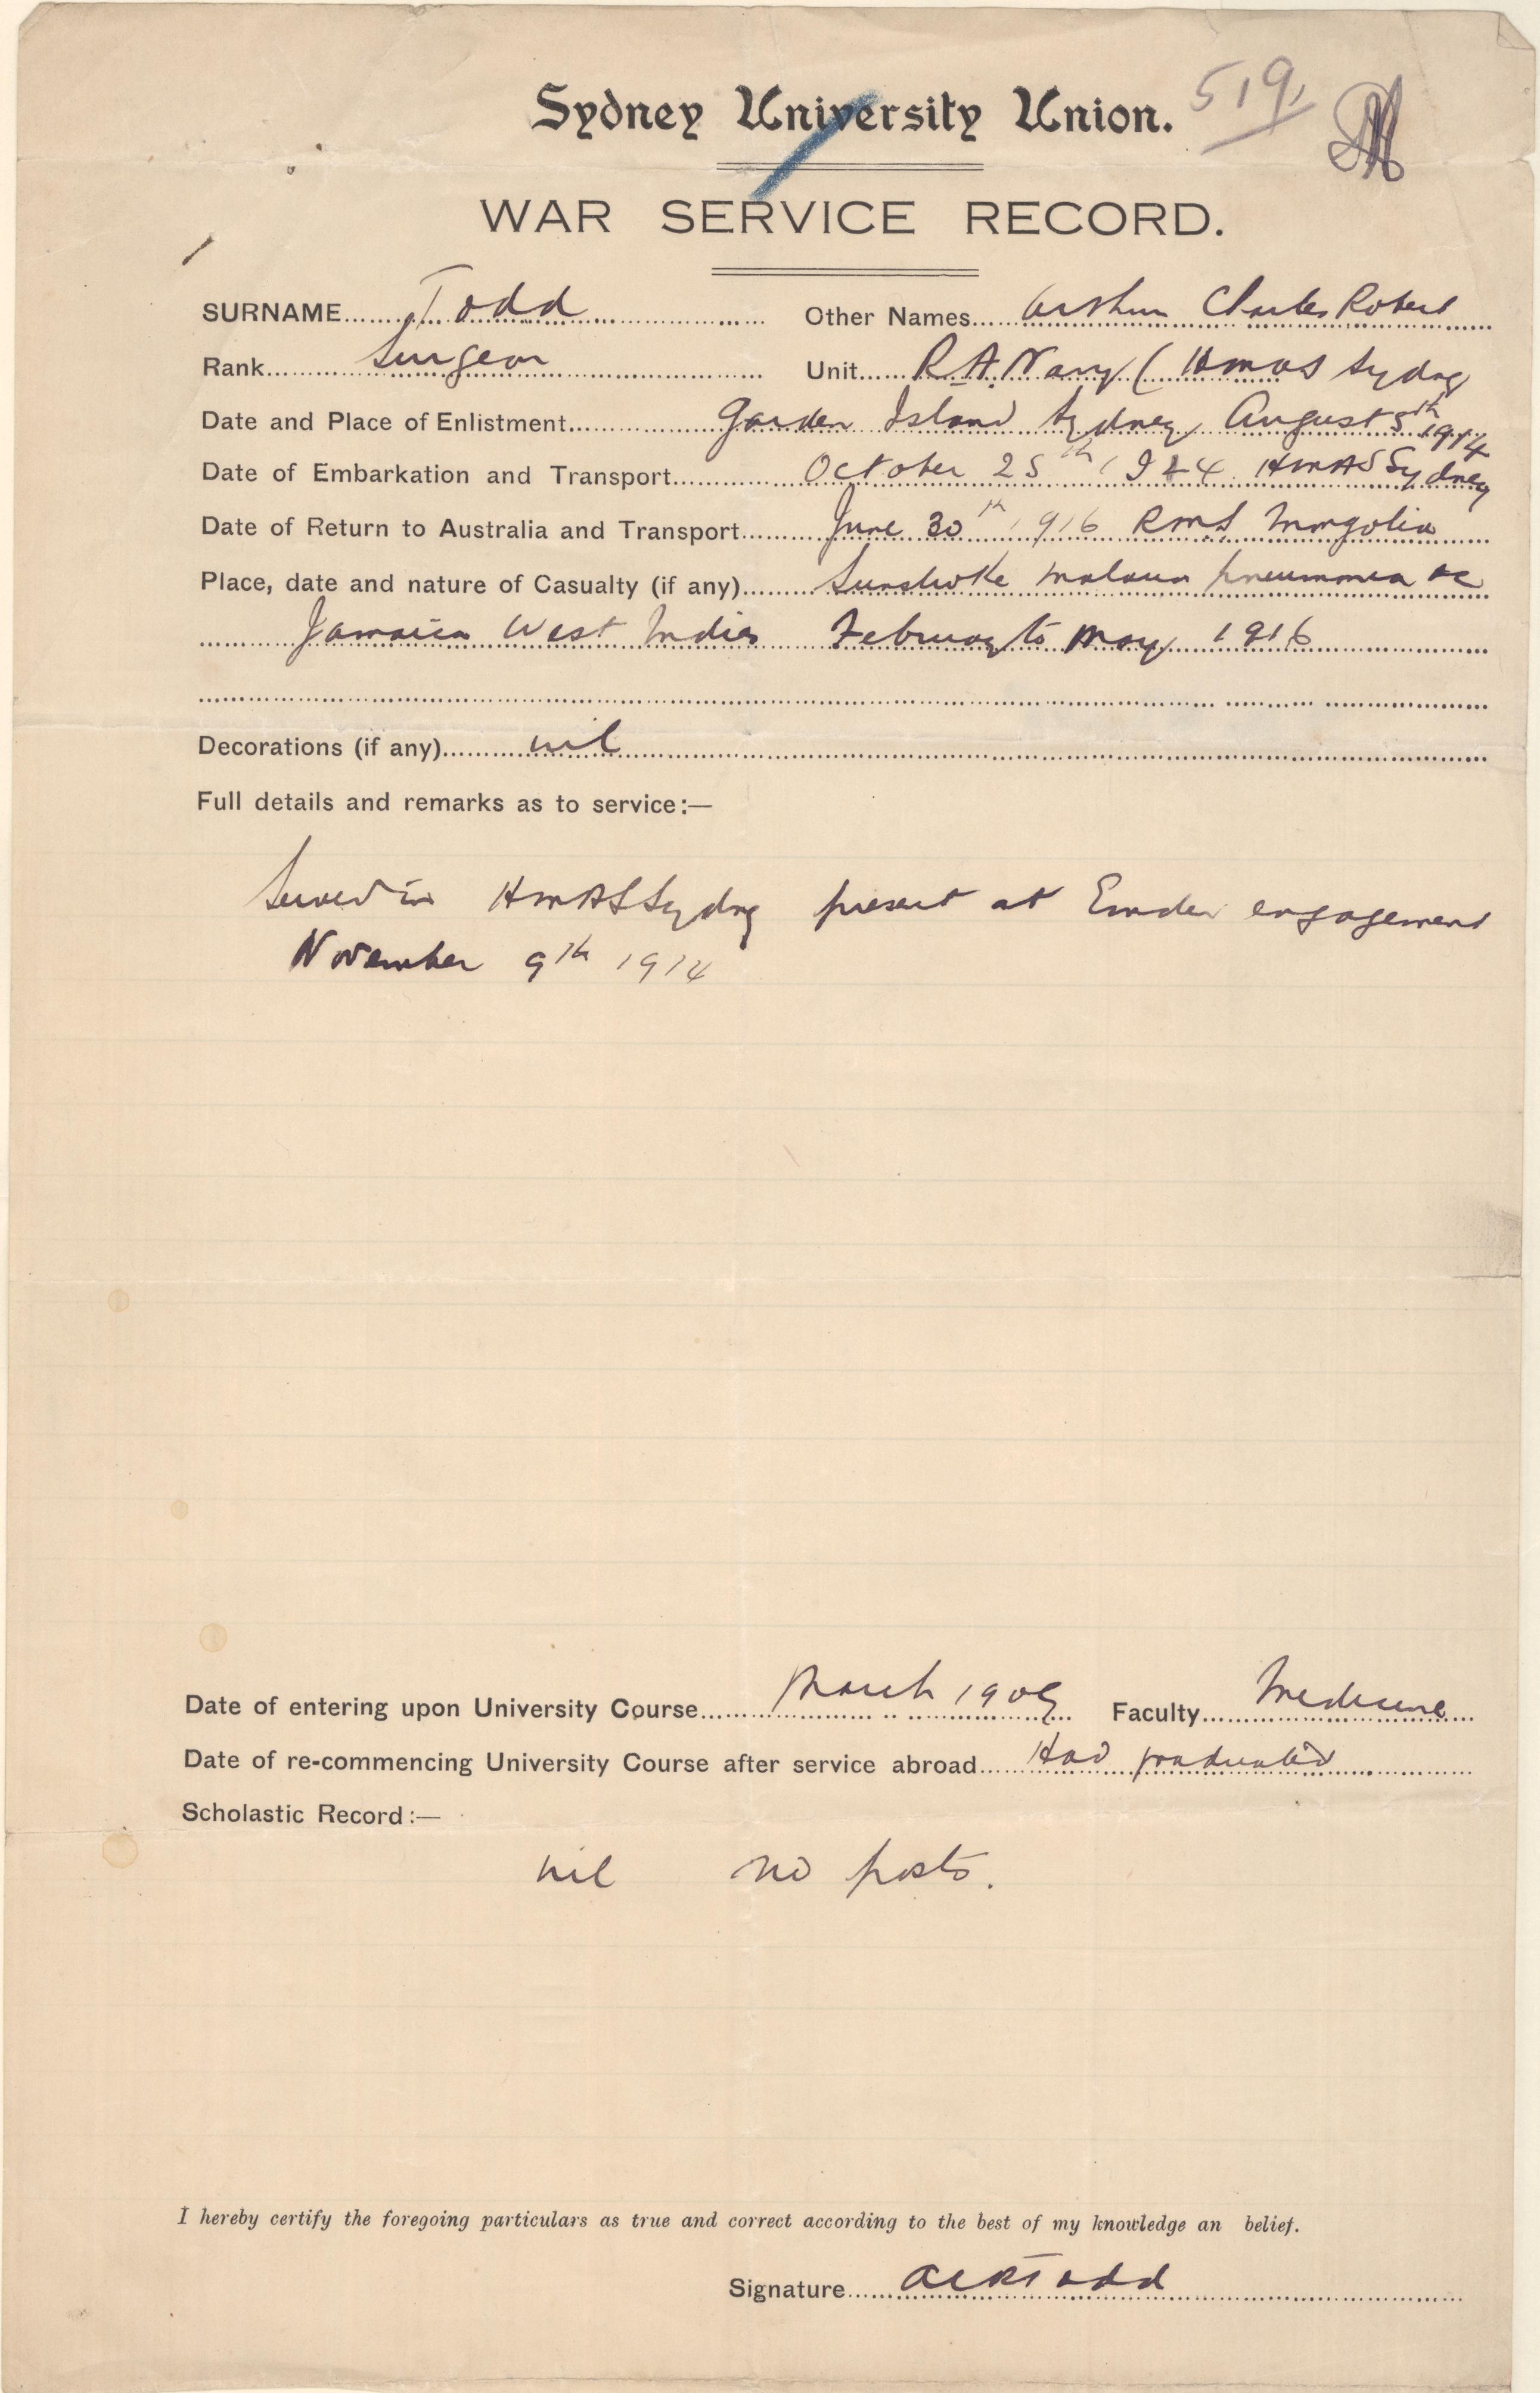 Sydney University Union. 519
WAR SERVICE RECORD.
SURNAME Todd Other Names Arthur Charles Robert
Rank Surgeon Unit R.A.Navy ( HMAS Sydney
Date and Place of Enlistment Garden Island Sydney August 5th 1914
Date of Embarkation and Transport October 25th HMAS Sydney
Date of Return to Australia and Transport June 30th 1916 RMS Mongolia
Place, date and nature of Casualty (if any) Sunstroke malaria pneumonia
Jamaica West Indies February to May 1916
Decorations (if any) nil
Full details and remarks as to service:—
Served in HMAS Sydney present at Emden engagement
November 9th 1914
Date of entering upon University Course March 1909 Faculty Medicine
Date of re-commencing University Course after service abroad Had graduated
Scholastic Record:—
nil no posts.
I hereby certify the foregoing particulars as true and correct according to the best of my knowledge an belief.
Signature ACRTodd